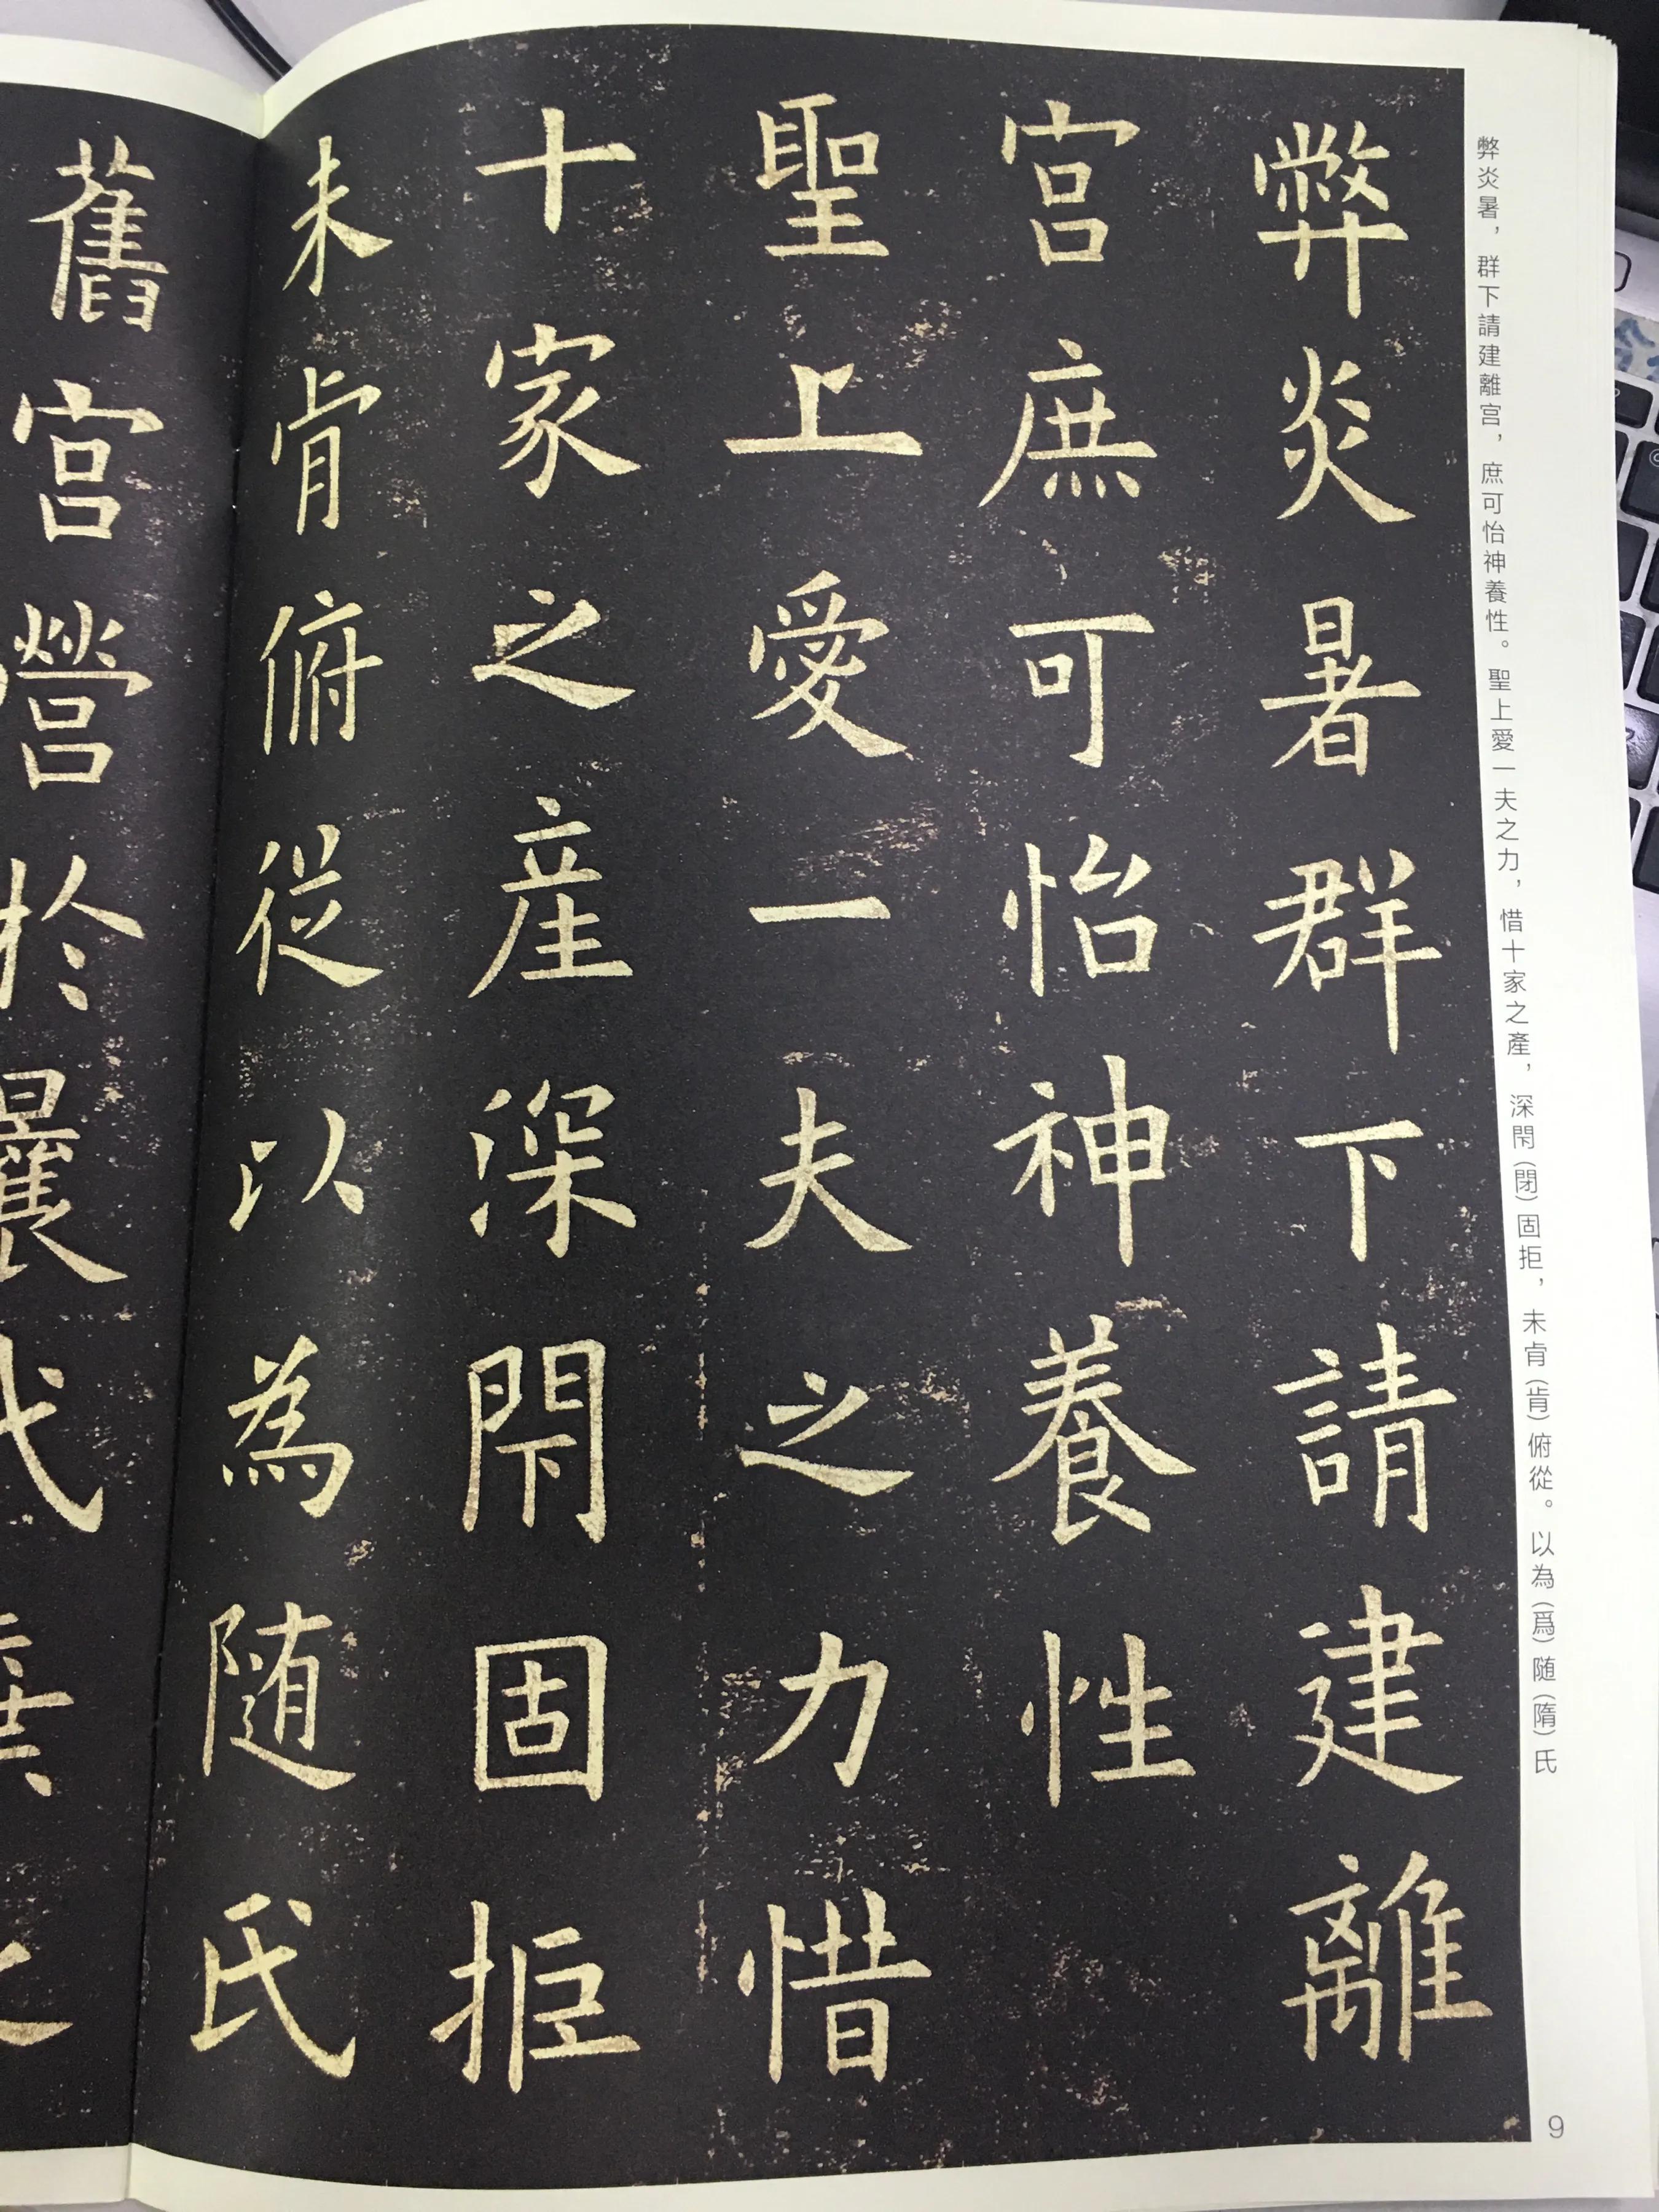 弊炎暑，群下請建離宮，庶可怡神養性。聖上愛一夫之力，惜十家之產，深閇（閉）固拒，未肎（肯）俯從。以為（爲）随（隋）氏
弊炎暑群下請建離
宮庶可怡神養性
聖上愛一夫之力惜
十家之產深閇固拒
未肎俯從以為随氏
舊宮營於曩代棄之
9